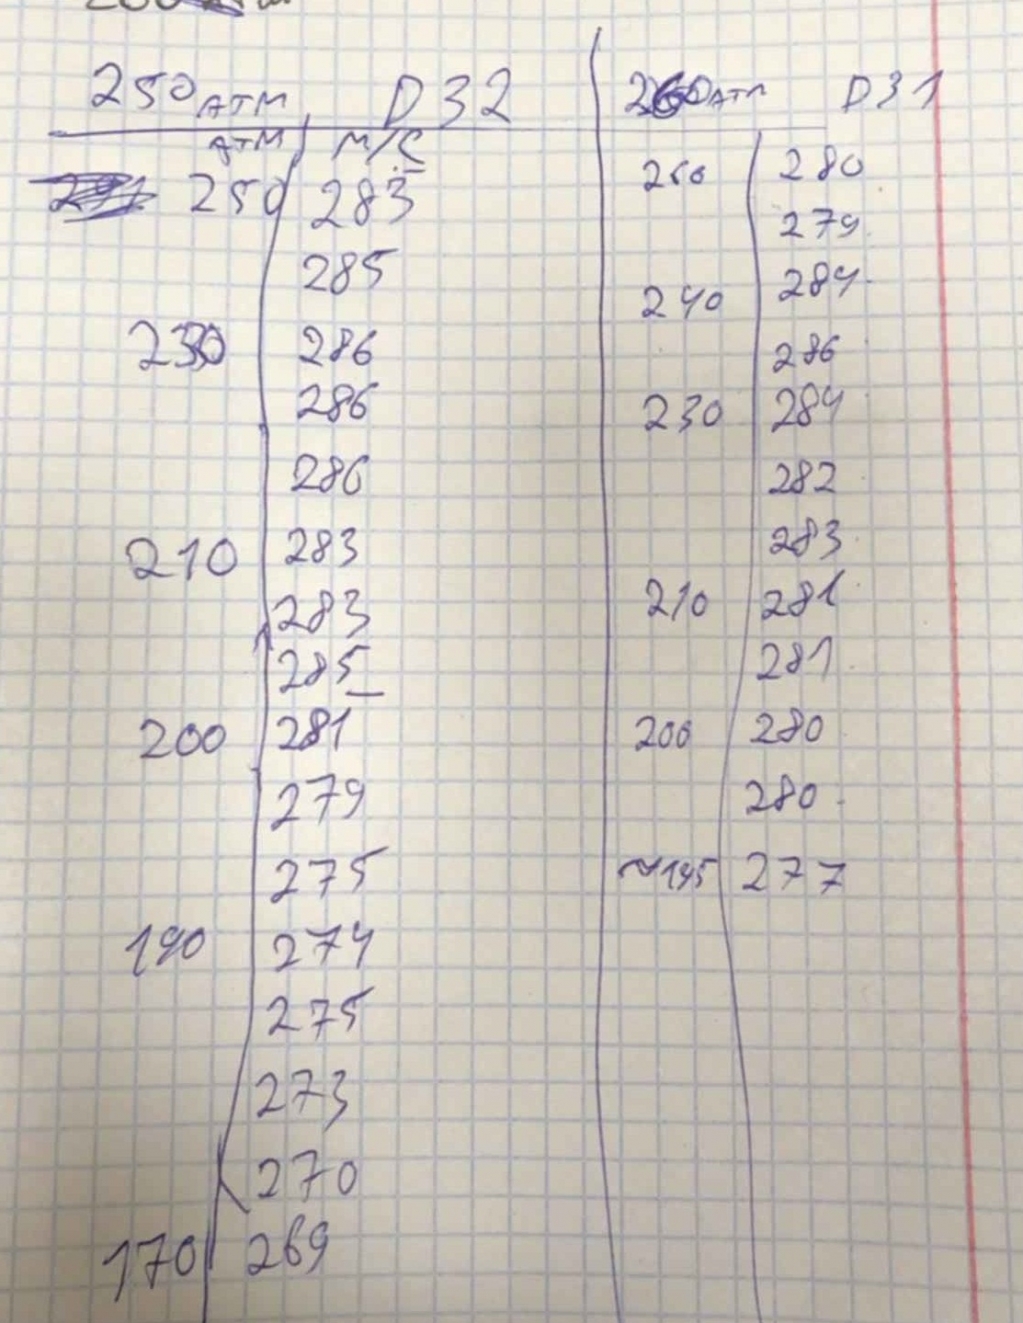 250 АТМ D 32
АТМ М/С
250 283
285
230 286
286
286
210 283
283
285
200 281
279
275
190 274
275
273
270
170 269
260 АТМ D 31
260 280
279
240 284
286
230 284
282
283
210 281
281
200 280
280
~195 277